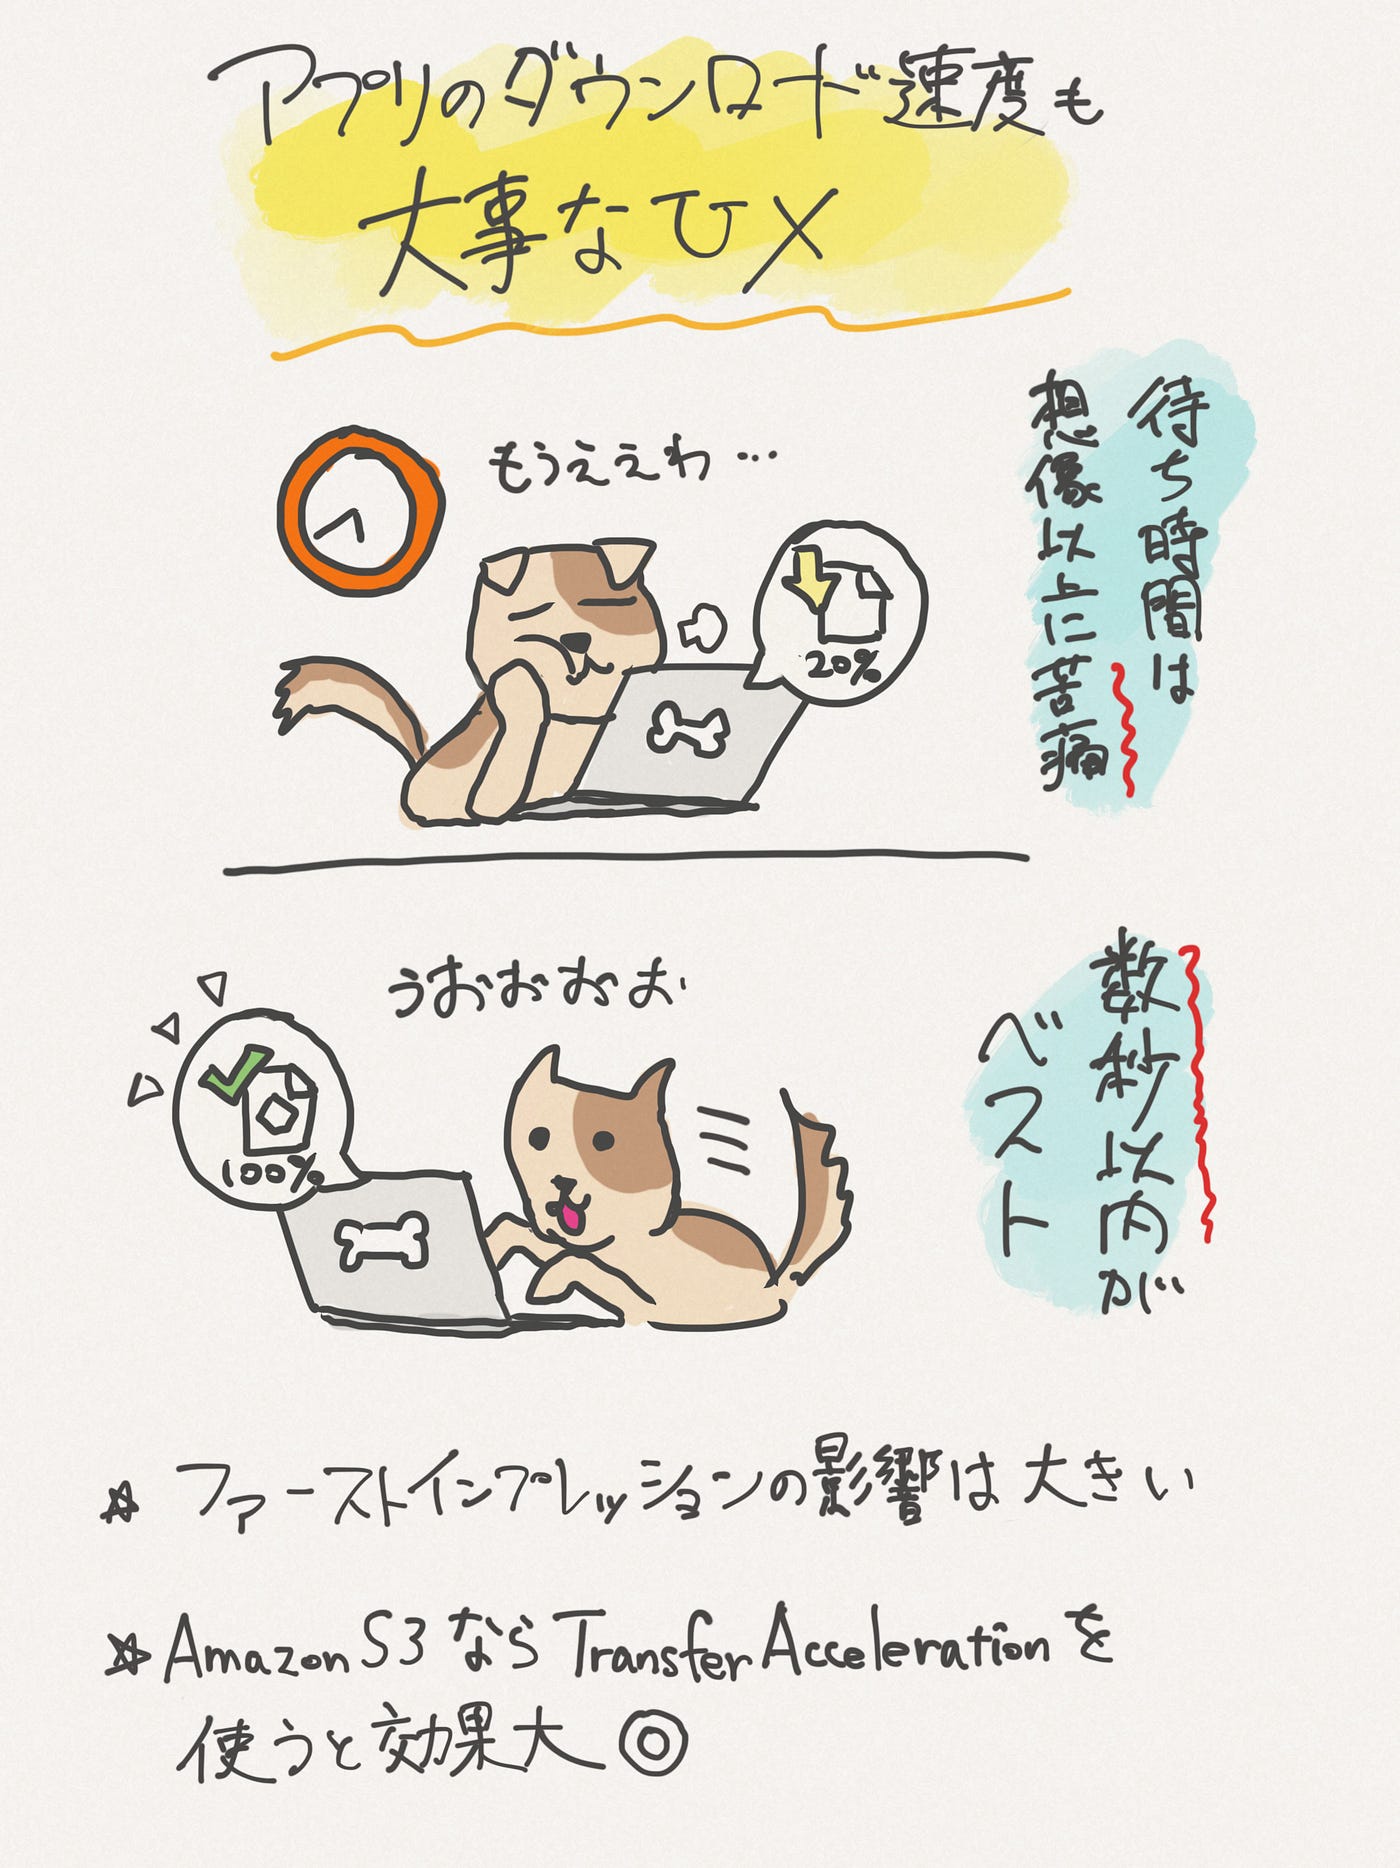 アプリのダウンロード速度も
大事なUX
待ち時間は
想像以上に苦痛
もうええわ…
20%
数秒以内が
ベスト
うおおおお
100%
☆ ファーストインプレッションの影響は大きい
☆ Amazon S3 なら Transfer Acceleration を
使うと効果大 ◎